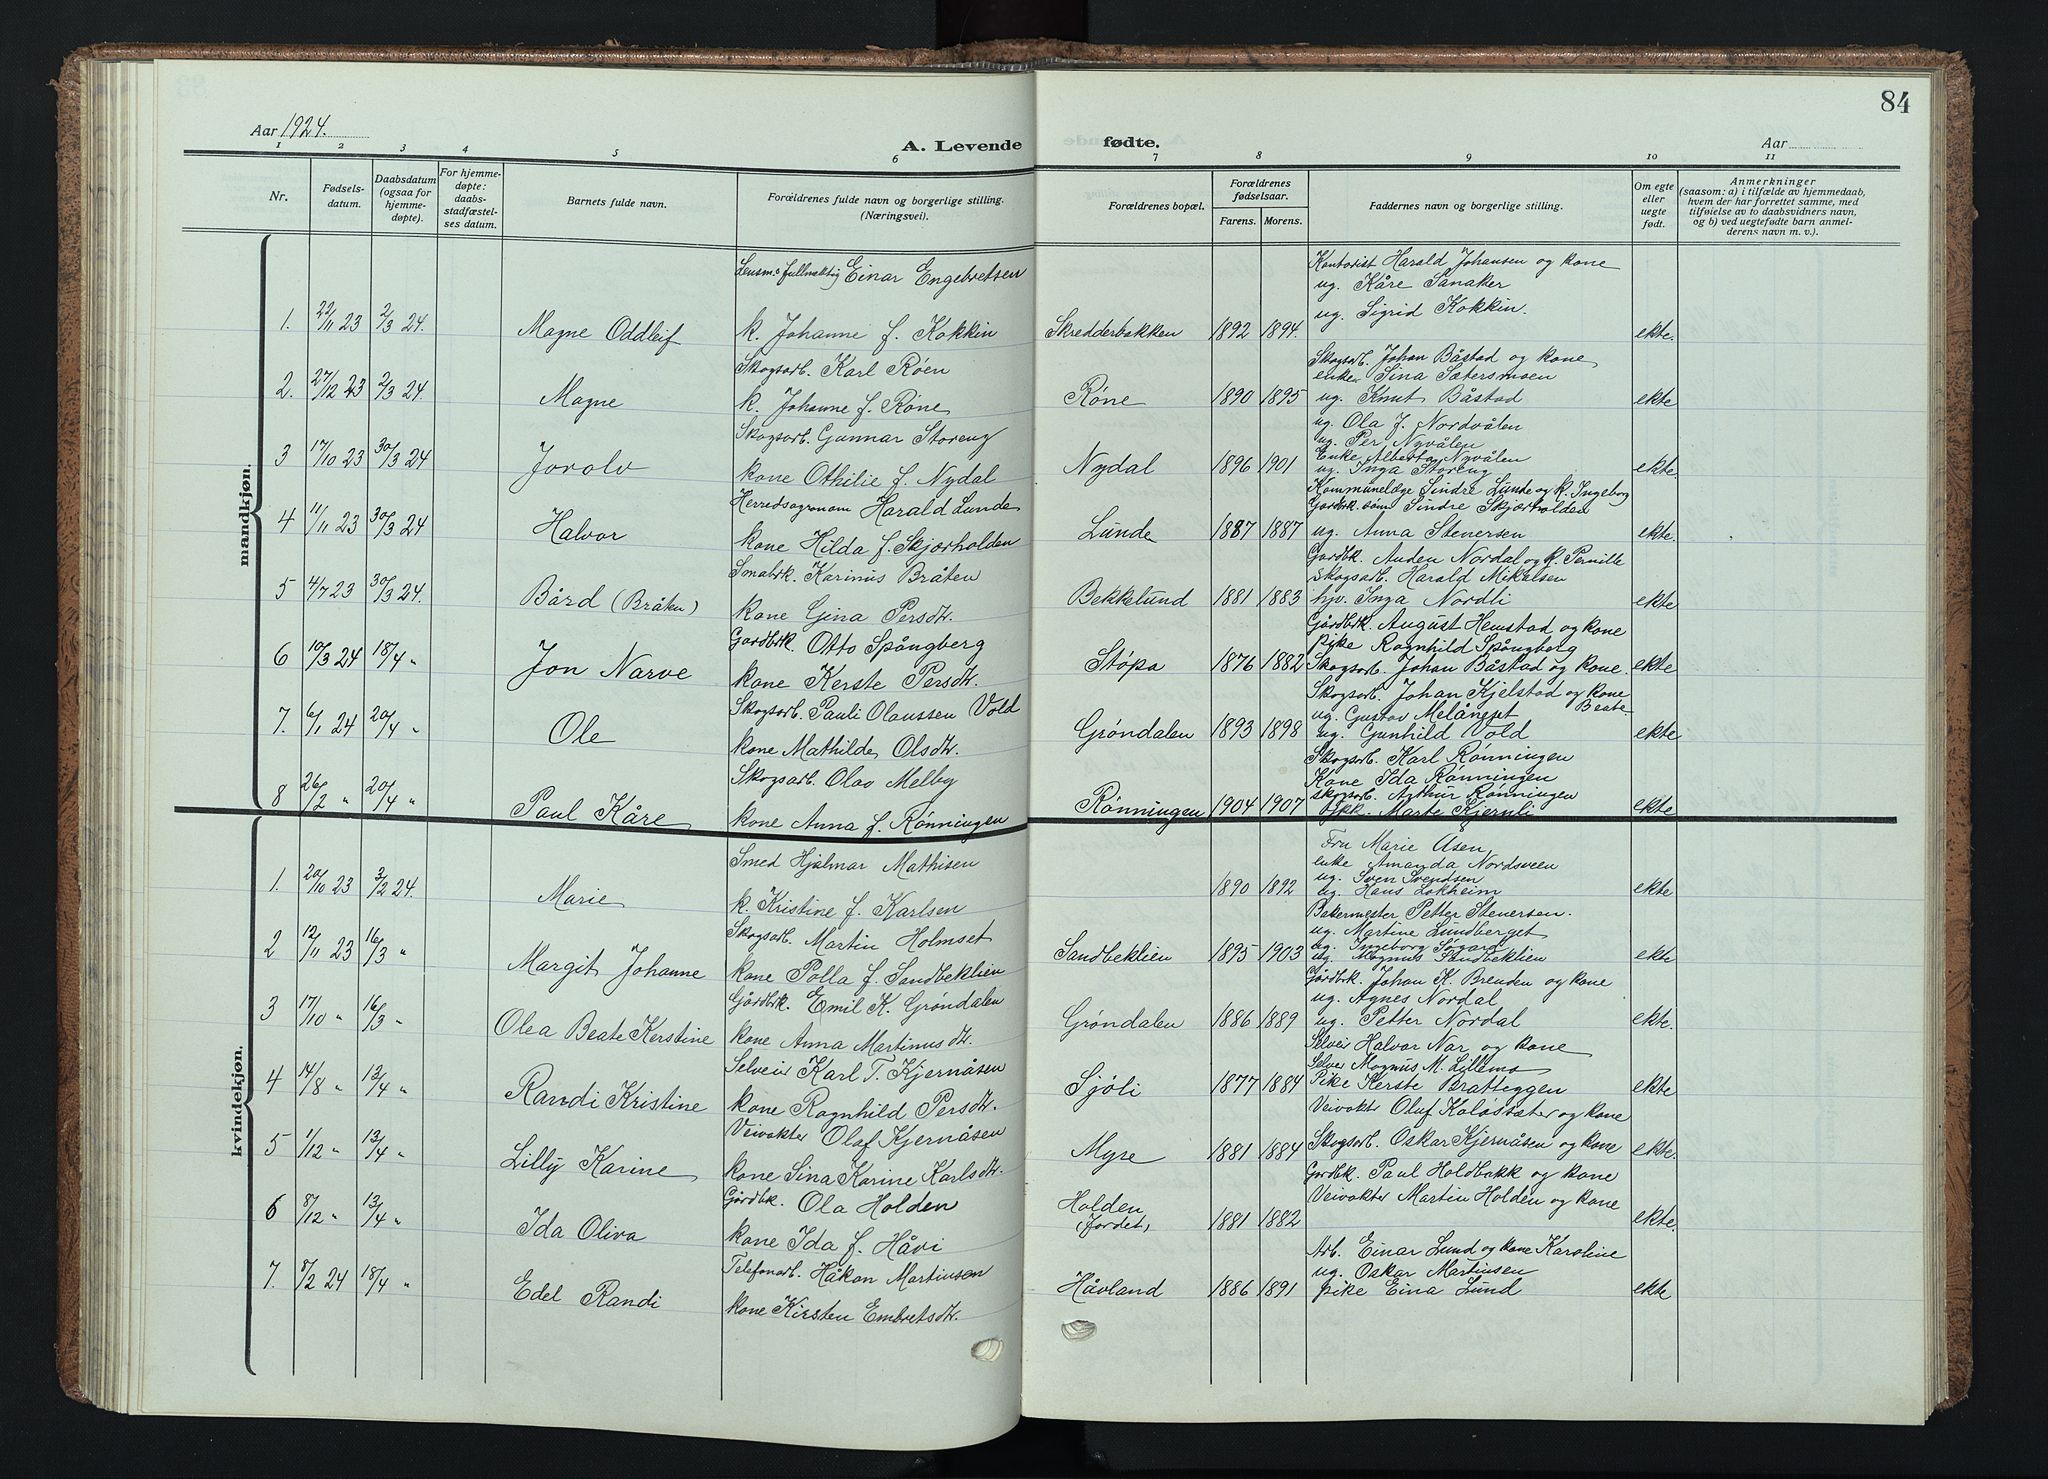 84
Aar 1924.
A. Levende fødte.
Aar
1 2 3 4 5 6 7 8 9 10 11
Nr.
Fødsels-
datum.
Daabsdatum
(ogsaa for
hjemme-
døpte).
For hjemme-
døpte:
daabs-
stadfæstel-
ses datum.
Barnets fulde navn.
Forældrenes fulde navn og borgerlige stilling.
(Næringsvei).
Forældrenes bopæl.
Forældrenes
fødselsaar.
Farens. Morens.
Faddernes navn og borgerlige stilling.
Om egte
eller
uegte
født.
Anmerkninger
(saasom: a) i tilfælde av hjemmedaab,
hvem der har forrettet samme, med
tilføielse av to daabsvidners navn,
og b) ved uegtefødte barn anmel-
derens navn m. v.).
mandkjøn.
Lensm.s fullmektig Einar Engebretsen
Kontorist Harald Johansen og kone
ug. Kåre Sanaker
ug. Sigrid Kokkin.
1. 22/11 23 2/3 24. Magne Oddleif k. Johanne f. Kokkin Skredderbakken 1892 1894. ekte.
Skogsarb. Karl Røen
Skogsarb. Johan Båstad og kone
enke Sina Sætersmoen
2. 27/12 23 2/3 24. Magne k. Johanne f. Røne Røne 1890 1895 ug. Knut Båstad ekte
Skogsarb. Gunnar Storeng
ug. Ola J. Nordvålen
ug. Per Nyvålen
Enke Alberta Nyvålen
3 17/10 23 30/3 24 Jorolv kone Othilie f. Nydal Nydal 1896 1901 ug. Inga Storeng ekte.
Herredsagronom Harald Lunde
Kommunelæge Sindre Lunde og k. Ingeborg
Gardbr. sønn Sindre Skjærholden
4 11/11 23 30/3 24 Halvor kone Hilda f. Skjærholden Lunde 1887 1887 ug. Anna Stenersen ekte.
Småbrk. Karinus Bråten
Gardbk. Anden Nordal og k. Pernille
Skogsarb. Harald Mikalsen
5 4/7 23 30/3 24. Bård (Bråten) kone Gina Persdtr. Bekkelund 1881 1883 hjv. Inga Nordli ekte
Gardbrk. Otto Spångberg
Gårdbrk. August Hemstad og kone
pike Ragnhild Spångberg
6 10/3 24 18/4 " Jon Narve kone Kerste Persdtr. Støpa 1876 1882 Skogsarb. Johan Båstad og kone. ekte
Skogsarb. Pauli Olaussen Vold
Skogsarb. Johan Kjelstad og kone Beate.
ug. Gustav Melåneset
7. 6/1 24 20/4 " Ole kone Mathilde Olsdtr. Grøndalen 1893 1898 ug. Gunhild Vold ekte
Skogsarb. Olav Melby
Skogsarb. Karl Rønningen
Kone Ida Rønningen
skogsarb. Arthur Rønningen
8 26/2 " 20/4 " Paul Kåre kone Anna f. Rønningen Rønningen 1904 1907 Marte Kjernli ekte
kvindekjøn.
Smed Hjalmar Mathisen
Fru Marie Åsen
enke Amanda Nordsveen
ug. Sven Svendsen
1. 20/10 23 3/2 24. Marie k. Kristine f. Karlsen 1890 1892 ug. Hans Løkheim ekte
Skogsarb. Martin Holmset
Bakermester Petter Stenersen.
ug. Martine Lundberget
ug. Ingeborg Søgard
2 12/11 23 16/3 " Margit Johanne kone Polla f. Sandbeklien Sandbeklien 1895 1903 ug. Magnus Sandbeklien ekte
Gårdbrk. Emil K. Grøndalen
Gårdbk. Johan K. Brenden og kone
ug. Agnes Nordal
3 17/10 " 16/3 " Olea Beate Kerstine kone Anna Martinusdtr. Grøndalen 1886 1889 ug. Petter Nordal ekte.
Selveir Karl T. Kjernåsen
Selveir Halvor Nar og kone
Selveir Magnus M. Lillemo
4 14/8 " 13/4 " Randi Kristine kone Ragnhild Persdtr. Sjøli 1877 1884 Pike Kerste Bratteggen ekte
Veivokter Olaf Kjernåsen
Veivokter Oluf Koløsæter og kone
5 1/12 " 13/4 " Lilly Karine kone Sina Karine Karlsdtr. Myre 1881 1884 Skogsarb. Oskar Kjernåsen og kone ekte.
Gårdbk. Ola Holden
Gardbk. Paul Holdbakk og kone
Veivokter Martin Holden og kone
6 8/12 " 13/4 " Ida Oliva kone Ida f. Håvi Holden (Jordet) 1881 1882 ekte.
Telefonarb. Håkon Martinsen
Arb. Einar Lund og kone Karoline
ug. Oskar Martinsen
7. 8/2 24 18/4 " Edel Randi kone Kirsten Embretsdtr. Håvland 1886 1891 pike Eina Lund ekte